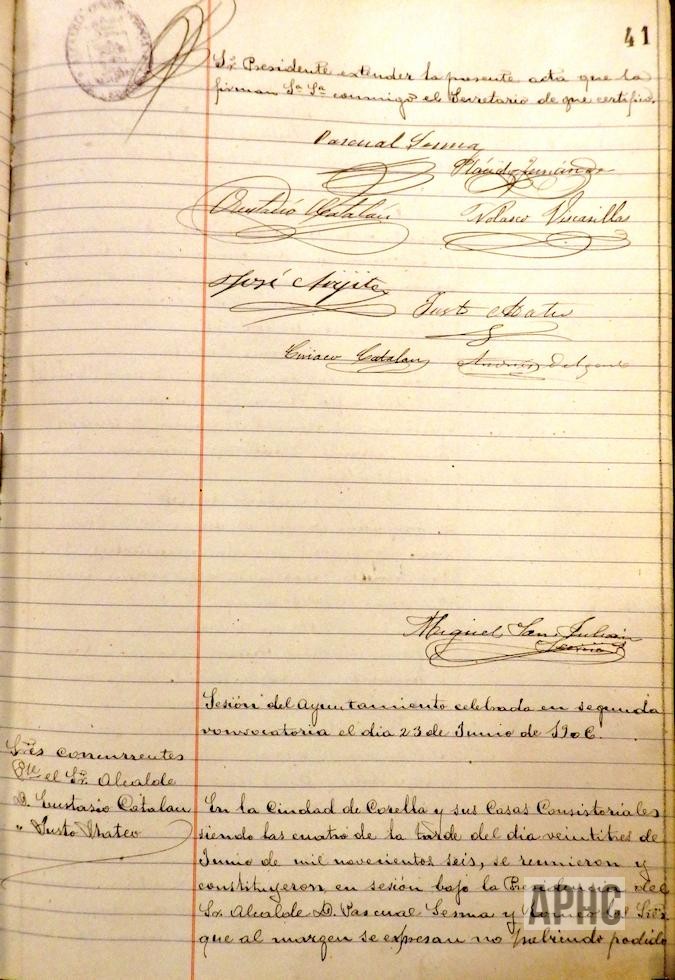 41
Sr. Presidente extender la presente acta que la
firman Sª Sª conmigo el Secretario de que certifico.
Pascual Sesma
Plácido Fernández
Eustasio Catalán
Nolasco Viscasillas
José Arijita
Justo Mateo
Ciriaco Catalan
Delgado
Miguel San Julián
Secrio
Sesión del Ayuntamiento celebrada en segunda
convocatoria el dia 23 de Junio de 1906.
Sres concurrentes
Pte el Sr. Alcalde
D. Eustasio Catalan
" Justo Mateo
En la Ciudad de Corella y sus Casas Consistoriales
siendo las cuatro de la tarde del dia veintitres de
Junio de mil novecientos seis, se reunieron y
constituyeron en sesión bajo la Presidencia del
Sr. Alcalde D. Pascual Sesma y los Sres
que al margen se expresan no habiendo podido
APHC